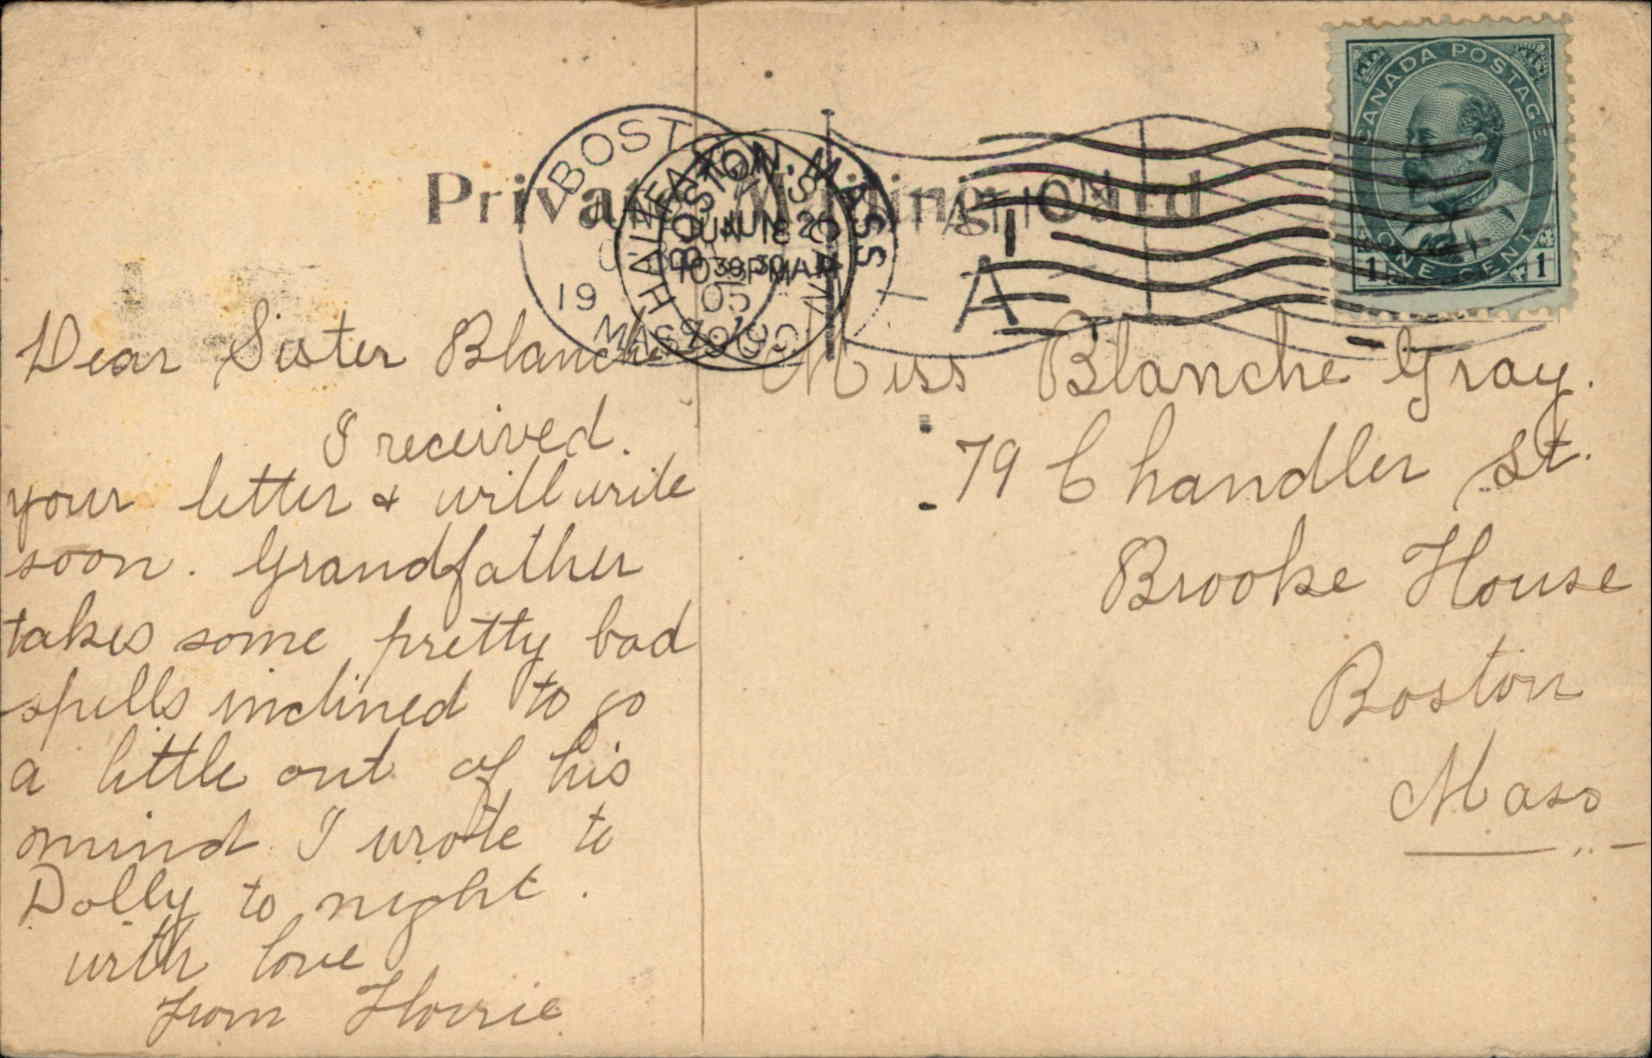 CANADA POSTAGE
1 ONE CENT 1
Private Mailing Card
BOSTON, MASS
JUN 18
Dear Sister Blanche
I received.
your letter & will write
soon. Grandfather
takes some pretty bad
spells inclined to go
a little out of his
mind. I wrote to
Dolly to night.
with love
from
Miss Blanche Gray.
79 Chandler St.
Brooke House
Boston
Mass